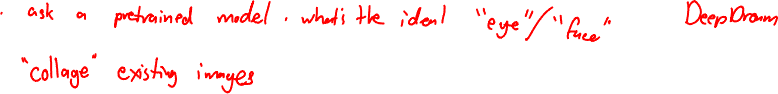 . ask a pretrained model. what's the ideal "eye"/"face" DeepDream
"collage" existing images